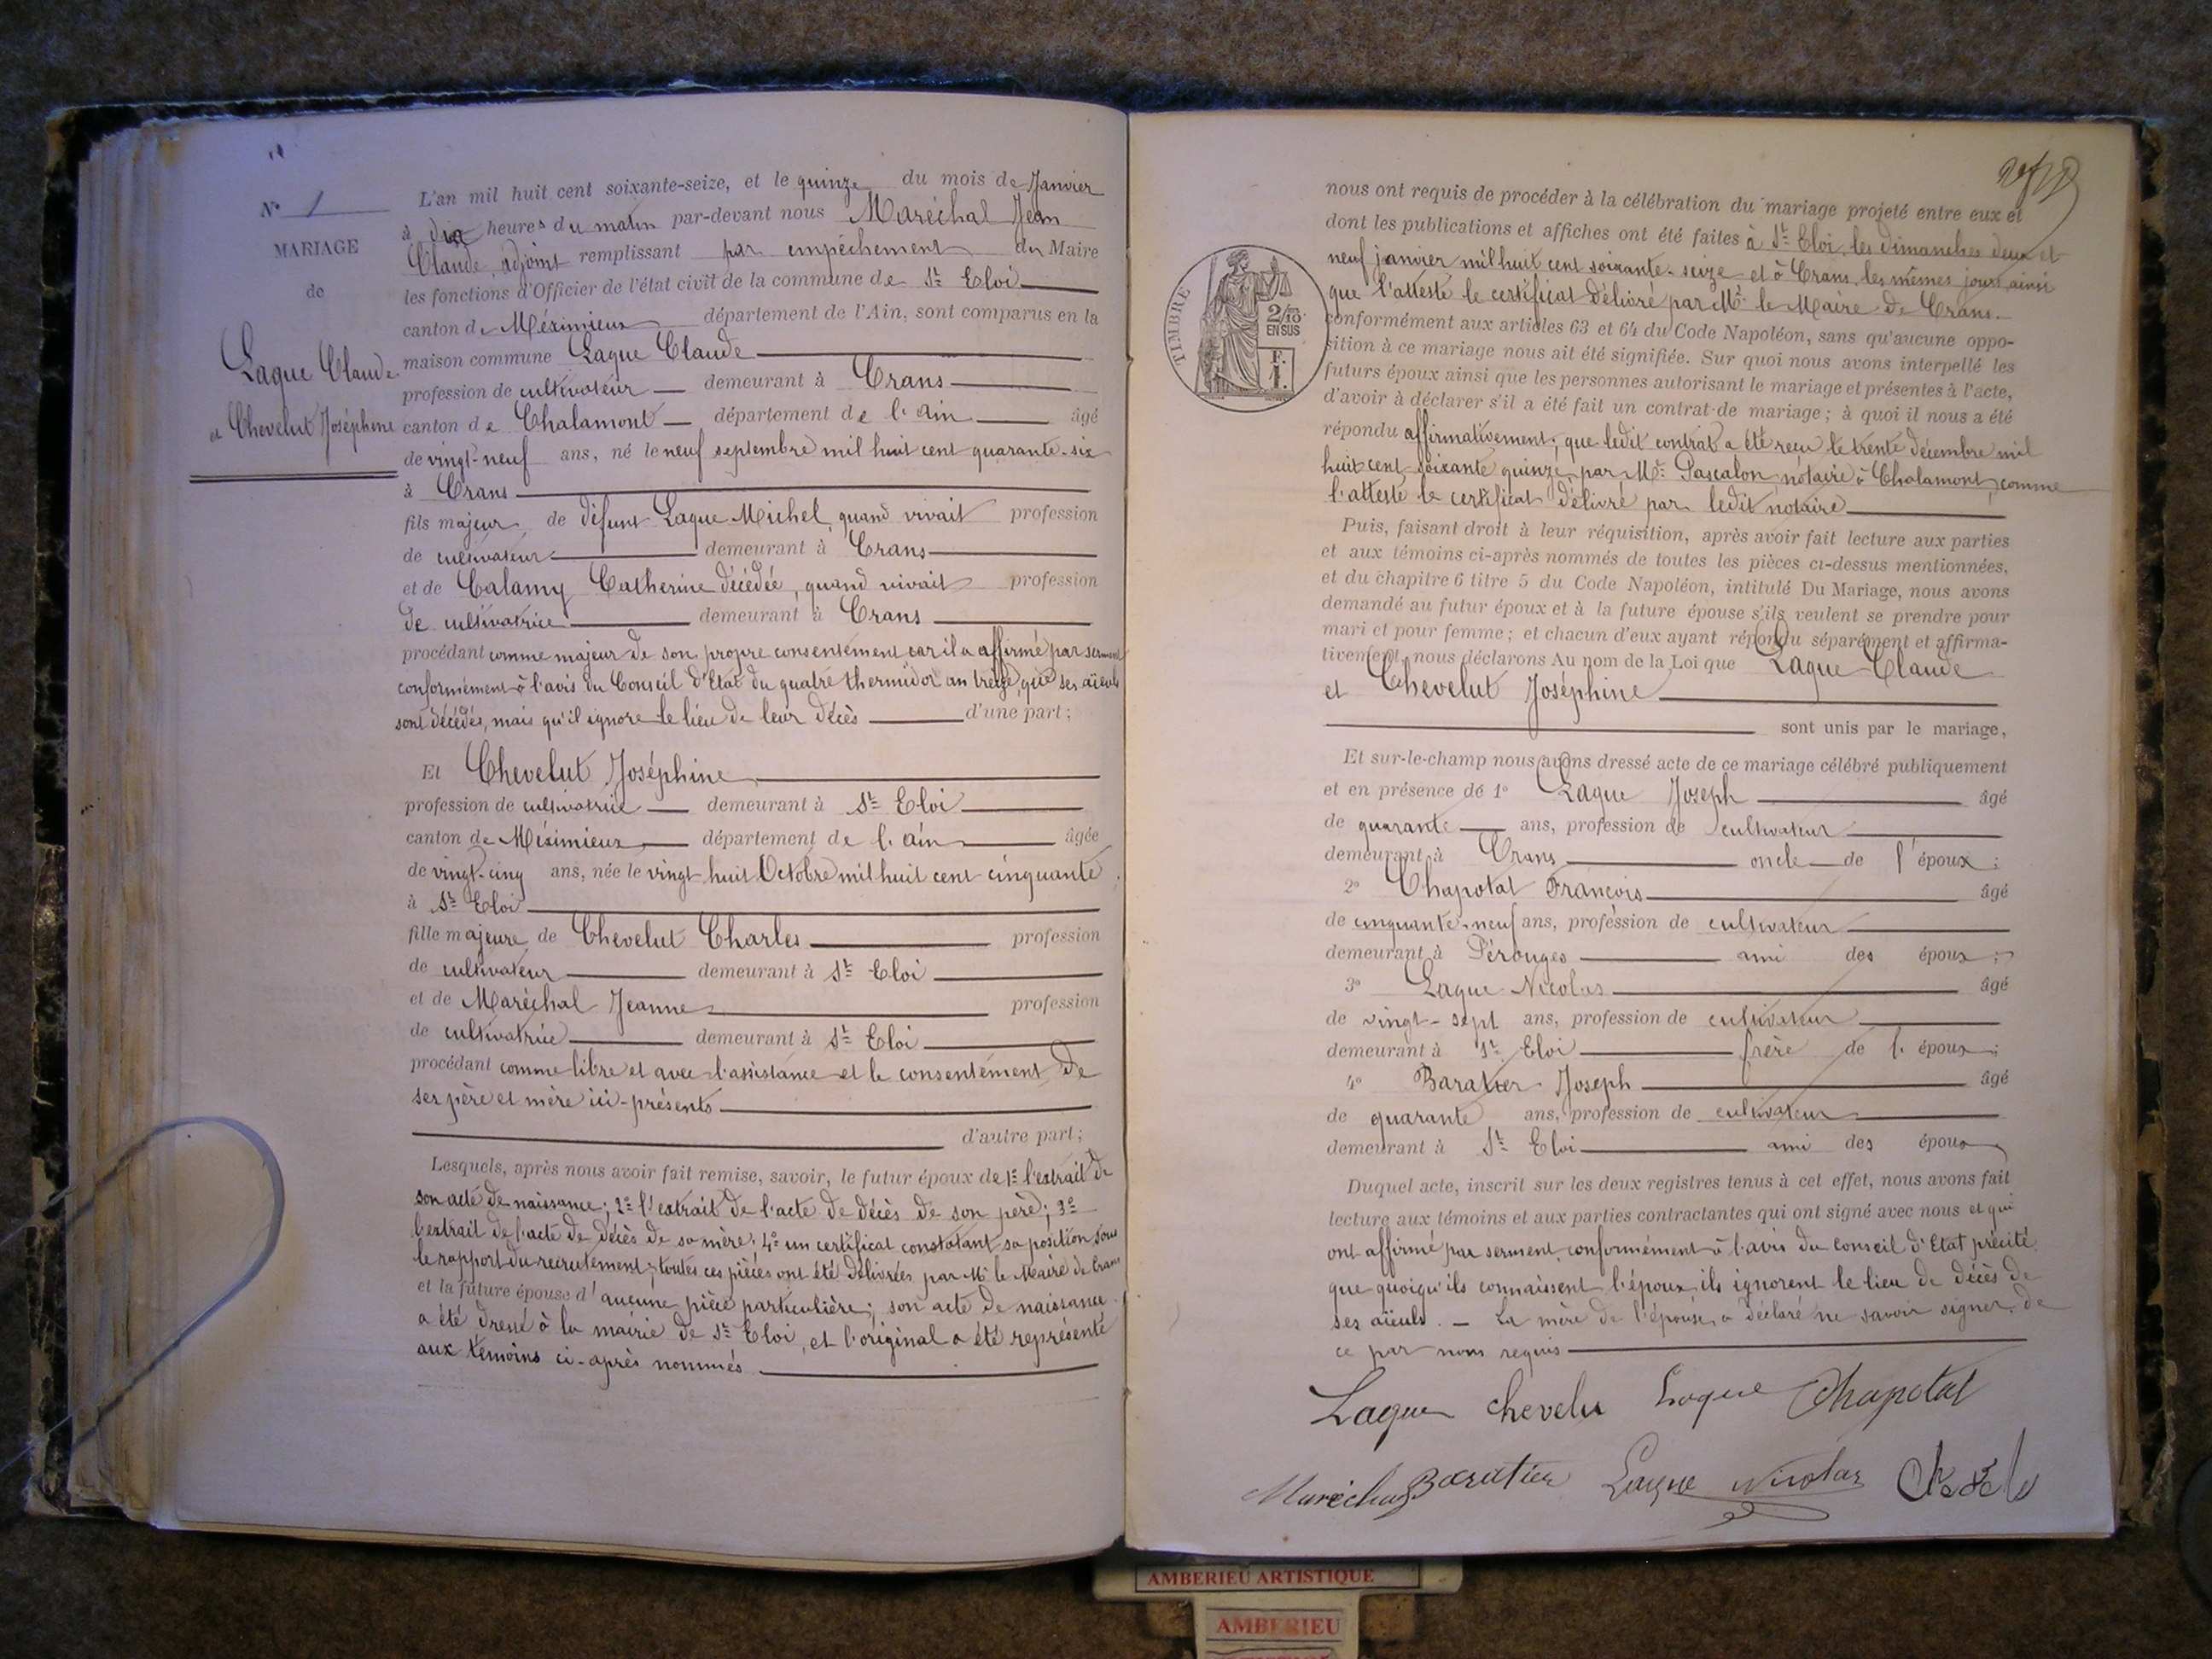 N° 1
MARIAGE
de
Laque Claude
et Chevelut Joséphine
L'an mil huit cent soixante-seize, et le quinze du mois de Janvier
à dix heures du matin par-devant nous Maréchal Jean
Claude, adjoint remplissant par empêchement du Maire
les fonctions d'Officier de l'état civil de la commune de St Eloi
canton de Méximieux département de l'Ain, sont comparus en la
maison commune Laque Claude
profession de cultivateur demeurant à Crans
canton de Chalamont département de l'ain âgé
de vingt-neuf ans, né le neuf septembre mil huit cent quarante-six
à Crans
fils majeur de défunt Laque Michel, quand vivait profession
de cultivateur demeurant à Crans
et de Calamy Catherine décédée, quand vivait profession
de cultivatrice demeurant à Crans
procédant comme majeur de son propre consentement car il a affirmé par serment
conformément à l'avis du Conseil d'Etat du quatre thermidor an treize, que ses aïeuls
sont décédés, mais qu'il ignore le lieu de leur décès d'une part;
Et Chevelut Joséphine
profession de cultivatrice demeurant à St Eloi
canton de Méximieux département de l'ain âgée
de vingt-cinq ans, née le vingt huit Octobre mil huit cent cinquante
à St Eloi
fille majeure de Chevelut Charles profession
de cultivateur demeurant à St Eloi
et de Maréchal Jeanne profession
de cultivatrice demeurant à St Eloi
procédant comme libre et avec l'assistance et le consentement de
ses père et mère ici-présents
d'autre part;
Lesquels, après nous avoir fait remise, savoir, le futur époux de 1° l'extrait de
son acte de naissance; 2° l'extrait de l'acte de décès de son père; 3°
l'extrait de l'acte de décès de sa mère; 4° un certificat constatant sa position sous
le rapport du recrutement; toutes ces pièces ont été délivrées par Mr le Maire de Crans
et la future épouse d'aucune pièce particulière; son acte de naissance
a été dressé à la mairie de St Eloi, et l'original a été représenté
aux témoins ci-après nommés
TIMBRE
2/10 EN SUS
F.
1.
nous ont requis de procéder à la célébration du mariage projeté entre eux et
dont les publications et affiches ont été faites à St Eloi, les dimanches deux et
neuf janvier mil huit cent soixante-seize et à Crans, les mêmes jours ainsi
que l'atteste le certificat délivré par Mr le Maire de Crans.
conformément aux articles 63 et 64 du Code Napoléon, sans qu'aucune oppo-
sition à ce mariage nous ait été signifiée. Sur quoi nous avons interpellé les
futurs époux ainsi que les personnes autorisant le mariage et présentes à l'acte,
d'avoir à déclarer s'il a été fait un contrat de mariage; à quoi il nous a été
répondu affirmativement; que ledit contrat a été reçu le trente décembre mil
huit cent soixante quinze par Me Pascalon notaire à Chalamont, comme
l'atteste le certificat délivré par ledit notaire
Puis, faisant droit à leur réquisition, après avoir fait lecture aux parties
et aux témoins ci-après nommés de toutes les pièces ci-dessus mentionnées,
et du chapitre 6 titre 5 du Code Napoléon, intitulé Du Mariage, nous avons
demandé au futur époux et à la future épouse s'ils veulent se prendre pour
mari et pour femme; et chacun d'eux ayant répondu séparément et affirma-
tivement, nous déclarons Au nom de la Loi que Laque Claude
et Chevelut Joséphine
sont unis par le mariage,
Et sur-le-champ nous avons dressé acte de ce mariage célébré publiquement
et en présence de 1° Laque Joseph âgé
de quarante ans, profession de cultivateur
demeurant à Crans oncle de l'époux;
2° Chapotat François âgé
de cinquante-neuf ans, profession de cultivateur
demeurant à Pérouges ami des époux;
3° Laque Nicolas âgé
de vingt-sept ans, profession de cultivateur
demeurant à St Eloi frère de l'époux;
4° Baratier Joseph âgé
de quarante ans, profession de cultivateur
demeurant à St Eloi ami des époux
Duquel acte, inscrit sur les deux registres tenus à cet effet, nous avons fait
lecture aux témoins et aux parties contractantes qui ont signé avec nous et qui
ont affirmé par serment, conformément à l'avis du conseil d'Etat précité
que quoiqu'ils connaissent l'époux, ils ignorent le lieu de décès de
ses aïeuls. — La mère de l'épouse a déclaré ne savoir signer, de
ce par nous requis
Laque chevelu Laque Chapotat
Maréchal Baratier Laque Nicolas
AMBERIEU ARTISTIQUE
AMBERIEU